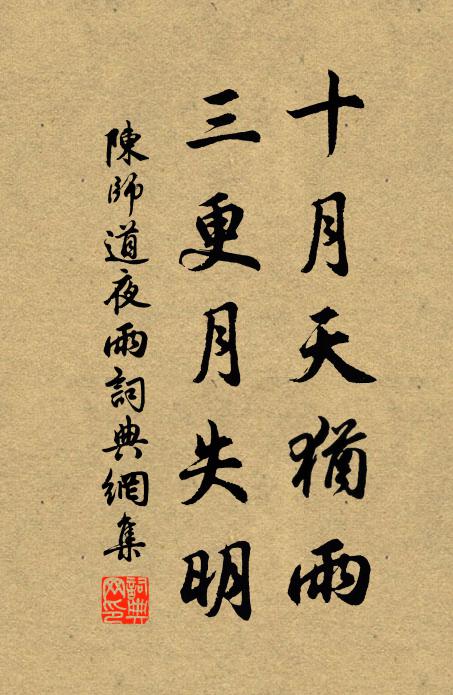 十月天猶雨
三更月失明
陳師道夜雨詞典網集
詞典网印